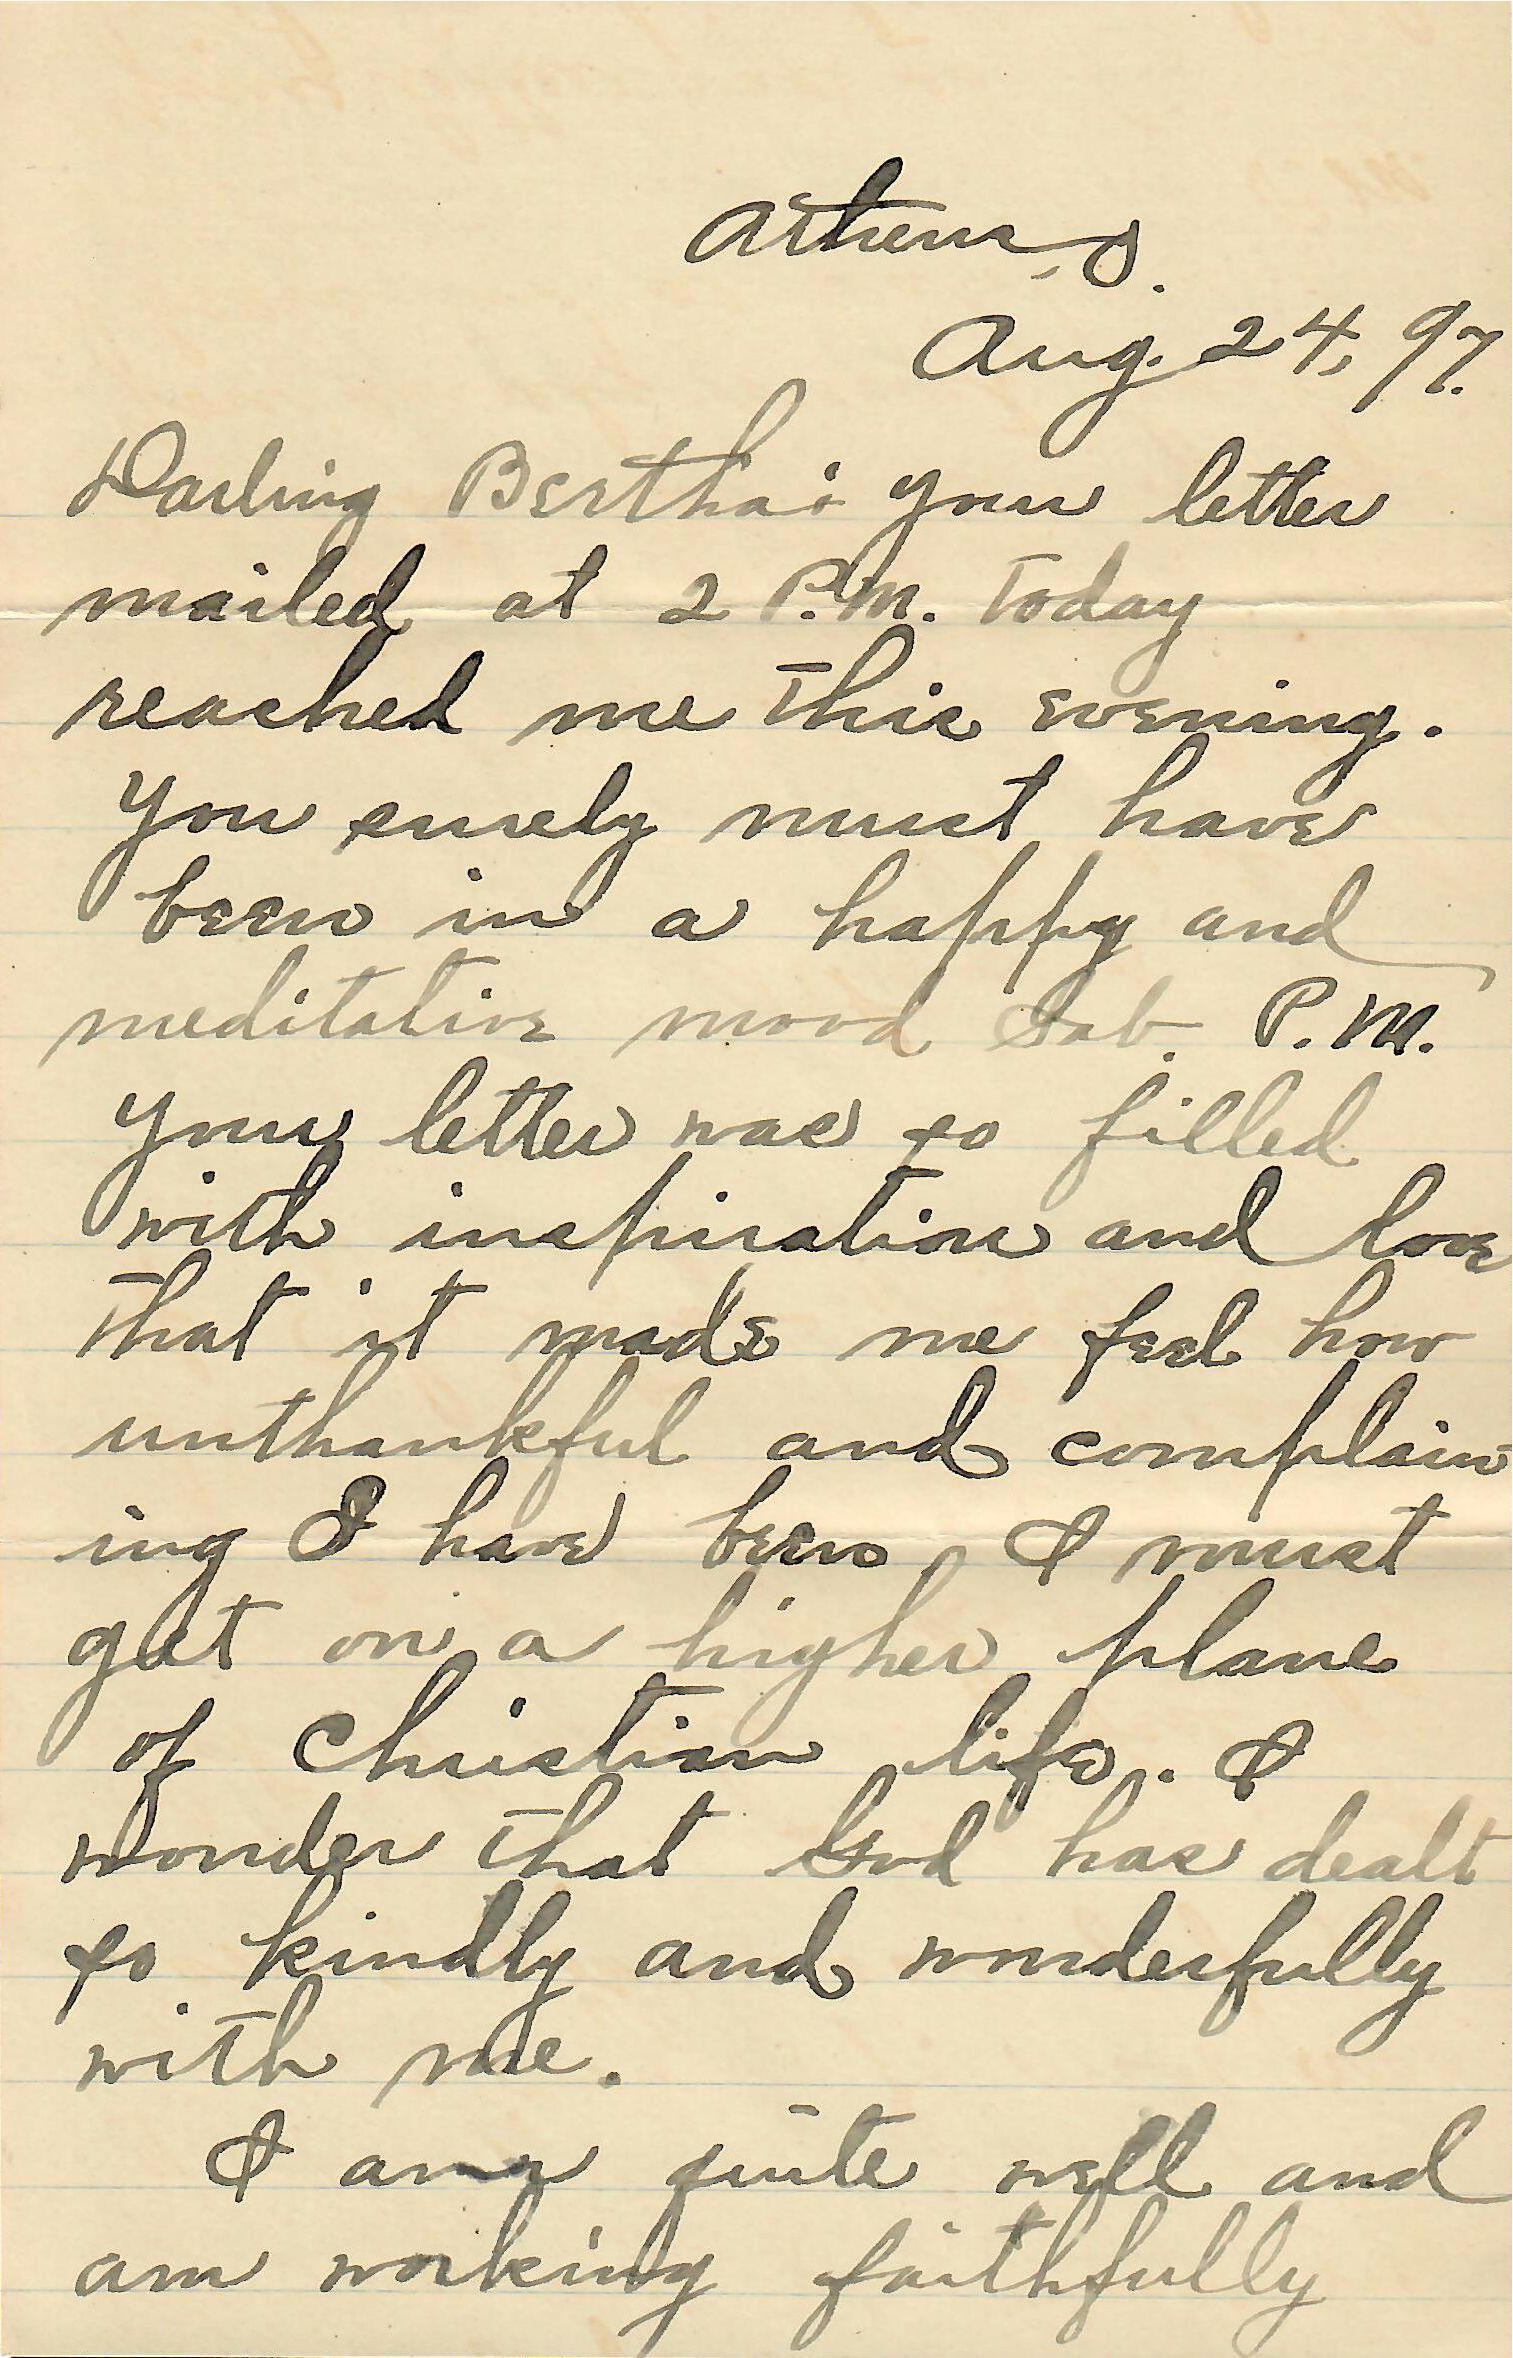 Athens, O.
Aug. 24, 97.
Darling Bertha: Your letter
mailed at 2 P.M. today
reached me this evening.
You surely must have
been in a happy and
meditative mood Sab. P.M.
Your letter was so filled
with inspiration and love
that it made me feel how
unthankful and complain
ing I have been, I must
get on a higher plane
of Christian life. I
wonder that God has dealt
so kindly and wonderfully
with me.
I am quite well and
am working faithfully